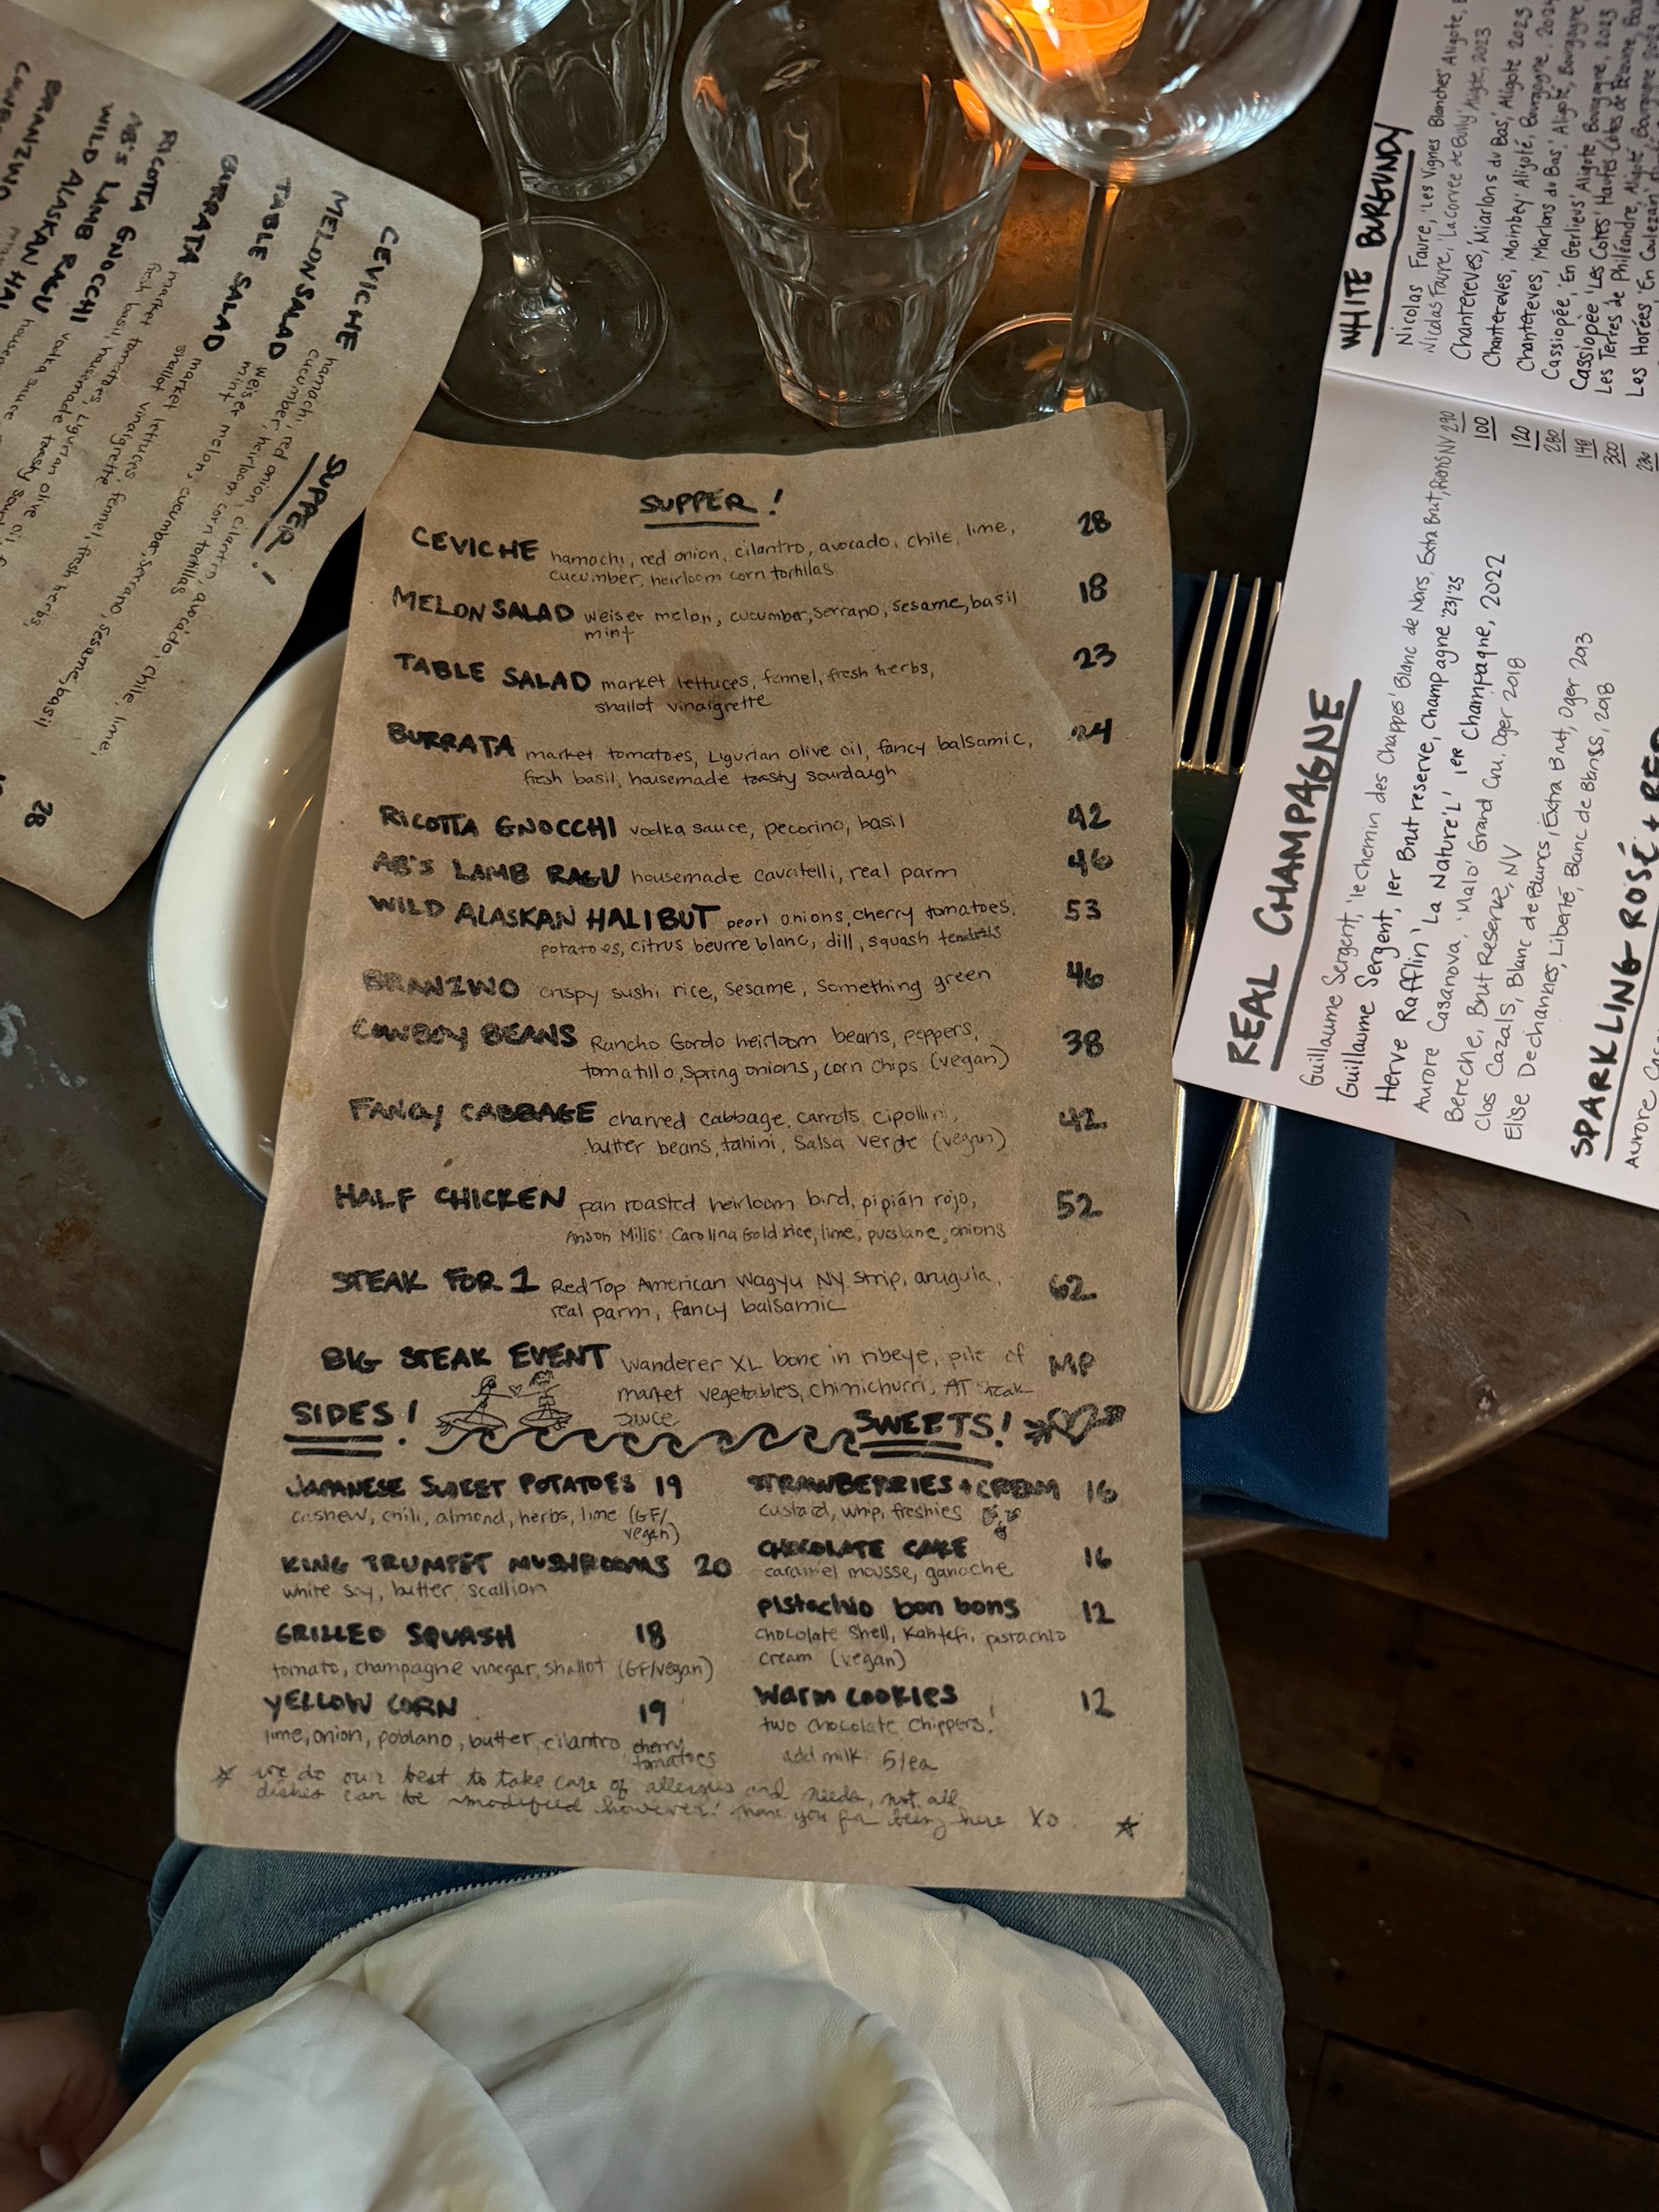 SUPPER!
CEVICHE hamachi, red onion, cilantro, avocado, chile, lime, 28
cucumber, heirloom corn tortillas
MELON SALAD weiser melon, cucumber, serrano, sesame, basil 18
mint
TABLE SALAD market lettuces, fennel, fresh herbs, 23
shallot vinaigrette
BURRATA market tomatoes, Ligurian olive oil, fancy balsamic, 24
fresh basil, housemade toasty sourdough
RICOTTA GNOCCHI vodka sauce, pecorino, basil 42
AB'S LAMB RAGU housemade cavatelli, real parm 46
WILD ALASKAN HALIBUT pearl onions, cherry tomatoes, 53
potatoes, citrus beurre blanc, dill, squash tendrils
BRANZINO crispy sushi rice, sesame, something green 46
COWBOY BEANS Rancho Gordo heirloom beans, peppers, 38
tomatillo, spring onions, corn chips (vegan)
FANCY CABBAGE charred cabbage, carrots, cipollini, 42
butter beans, tahini, salsa verde (vegan)
HALF CHICKEN pan roasted heirloom bird, pipián rojo, 52
Anson Mills' Carolina Gold rice, lime, purslane, onions
STEAK FOR 1 RedTop American Wagyu NY strip, arugula, 62
real parm, fancy balsamic
BIG STEAK EVENT wanderer XL bone in ribeye, pile of MP
market vegetables, chimichurri, AT steak
sauce
SIDES!
JAPANESE SWEET POTATOES 19
cashew, chili, almond, herbs, lime (GF/
vegan)
KING TRUMPET MUSHROOMS 20
white soy, butter, scallion
GRILLED SQUASH 18
tomato, champagne vinegar, shallot (GF/vegan)
YELLOW CORN 19
lime, onion, poblano, butter, cilantro, cherry
tomatoes
SWEETS!
STRAWBERRIES + CREAM 16
custard, whip, freshies
CHOCOLATE CAKE 16
caramel mousse, ganache
Pistachio bon bons 12
chocolate shell, Kahtefi, pistachio
cream (vegan)
Warm cookies 12
two chocolate chippers!
add milk 5/ea
we do our best to take care of allergies and needs, not all
dishes can be modified however! thank you for being here XO
SUPPER!
CEVICHE hamachi, red onion, cilantro, avocado, chile, lime,
cucumber, heirloom corn tortillas
28
MELON SALAD weiser melon, cucumber, serrano, sesame, basil
mint
TABLE SALAD market lettuces, fennel, fresh herbs,
shallot vinaigrette
BURRATA market tomatoes, Ligurian olive oil,
fresh basil, housemade toasty
RICOTTA GNOCCHI vodka sauce
AB'S LAMB RAGU
WILD ALASKAN
BRANZINO
WHITE BURGUNDY
Nicolas Faure, 'Les Vignes Blanches' Aligote,
Nicolas Faure, 'La Corvee de Bully' Aligote, 2023
Chantereves, Marlons du Bas,' Aligote 2023
Chantereves, 'Mainbey' Aligoté, Bourgogne, 2024
Chantereves, 'Marlons du Bas,' Aligoté, Bourgogne
Cassiopée, 'En Gerlieus' Aligote, Bourgogne, 2023
Cassiopée 'Les Cotes' Hautes-Cotes de Beaune,
Les Terres de Philéandre, Aligoté, Bourgogne
Les Horées 'En Coulezain'
REAL CHAMPAGNE
Guillaume Sergent, 'le chemin des Chappes' Blanc de Noirs, Extra Brut, NV 290
Guillaume Sergent, 1er Brut reserve, Champagne '23/'25 100
Herve Rafflin 'La Nature'L' 1ere Champagne, 2022 120
Aurore Casanova, 'Malo' Grand Cru, Oger 2018 280
Bereche, Brut Reserve, NV 140
Clos Cazals, Blanc de Blancs, Extra Brut, Oger 2013 300
Elise Dechannes, Liberté, Blanc de Blancs, 2018 230
SPARKLING ROSÉ + RED
Aurore